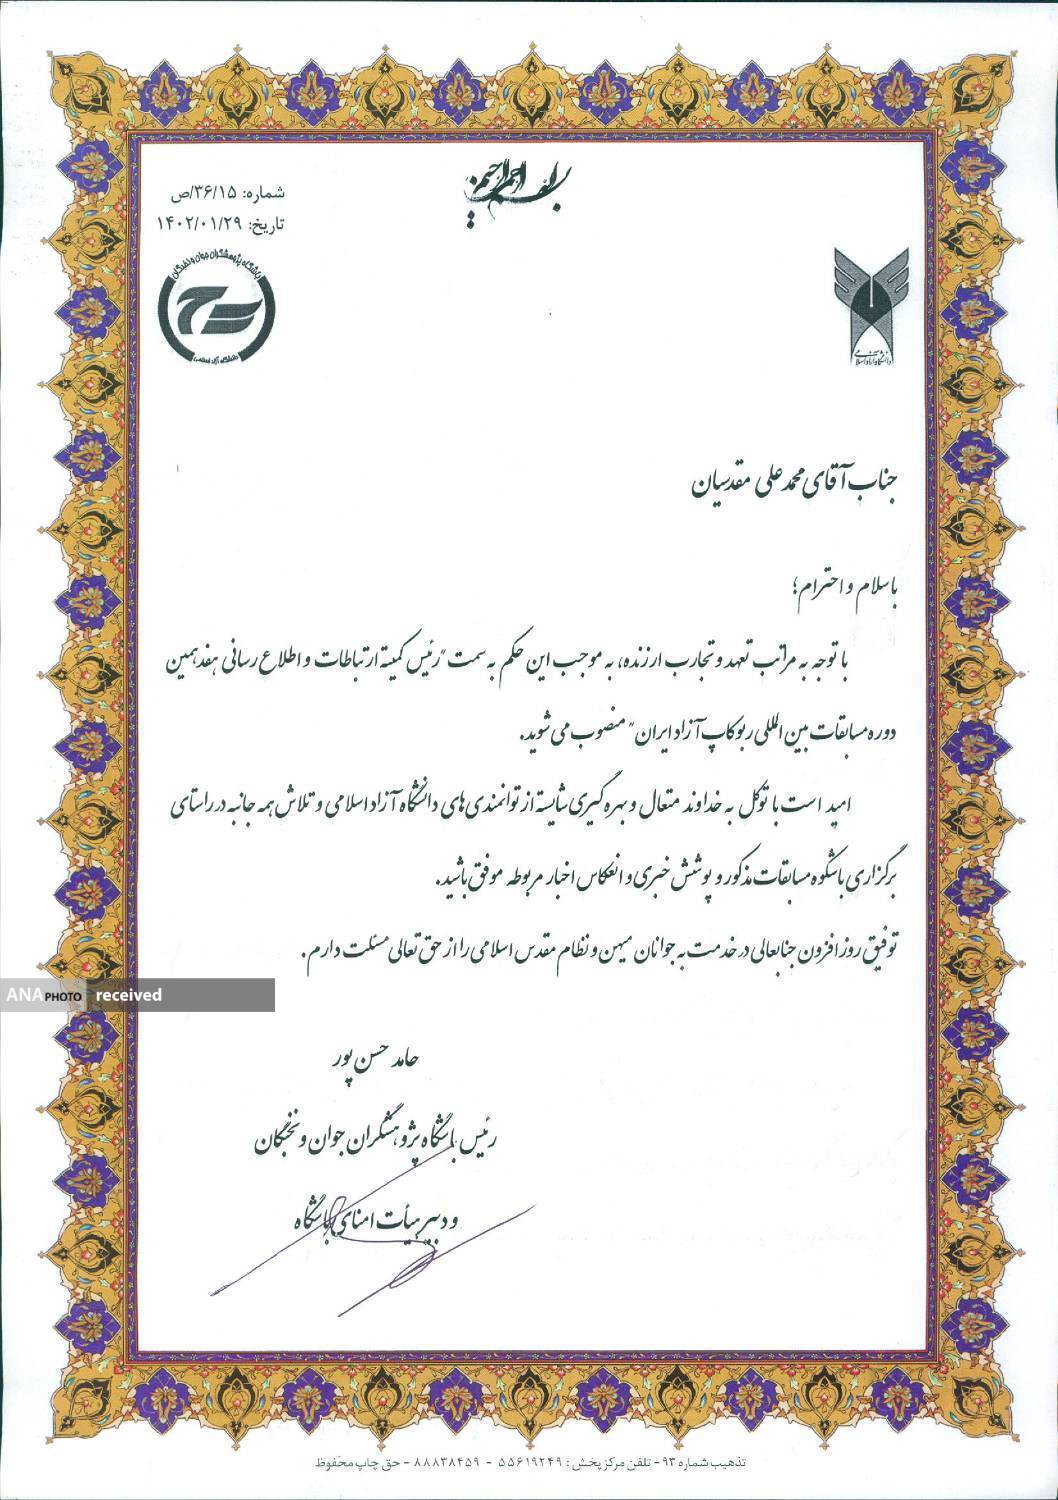 بسم الله الرحمن الرحیم
شماره: ۳۶/۱۵/ص
تاریخ: ۱۴۰۲/۰۱/۲۹
باشگاه پژوهشگران جوان و نخبگان
دانشگاه آزاد اسلامی
دانشگاه آزاد اسلامی
جناب آقای محمد علی مقدسیان
با سلام و احترام؛
با توجه به مراتب تعهد و تجارب ارزنده، به موجب این حکم به سمت "رئیس کمیته ارتباطات و اطلاع رسانی هفدهمین
دوره مسابقات بین المللی ربوکاپ آزاد ایران" منصوب می شوید.
امید است با توکل به خداوند متعال و بهره گیری شایسته از توانمندی های دانشگاه آزاد اسلامی و تلاش همه جانبه در راستای
برگزاری باشکوه مسابقات مذکور و پوشش خبری و انعکاس اخبار مربوطه موفق باشید.
توفیق روز افزون جنابعالی در خدمت به جوانان میهن و نظام مقدس اسلامی را از حق تعالی مسئلت دارم.
ANA PHOTO received
حامد حسن پور
رئیس باشگاه پژوهشگران جوان و نخبگان
و دبیر هیأت امنای باشگاه
تذهیب شماره ۹۳ - تلفن مرکز پخش: ۵۵۶۱۹۲۴۹ - ۸۸۸۳۸۴۵۹ - حق چاپ محفوظ